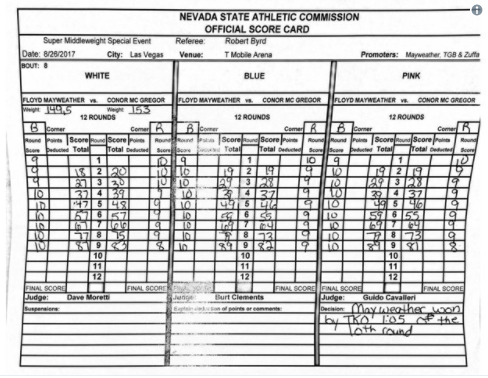 NEVADA STATE ATHLETIC COMMISSION
OFFICIAL SCORE CARD
Super Middleweight Special Event Referee: Robert Byrd
Date: 8/26/2017 City: Las Vegas Venue: T Mobile Arena Promoters: Mayweather, TGB & Zuffa
BOUT: 8
WHITE BLUE PINK
FLOYD MAYWEATHER vs. CONOR MC GREGOR FLOYD MAYWEATHER vs. CONOR MC GREGOR FLOYD MAYWEATHER vs. CONOR MC GREGOR
Weight: 149.5 Weight: 153
12 ROUNDS 12 ROUNDS 12 ROUNDS
B Corner Corner R B Corner Corner R B Corner Corner R
Round Points Score Round Score Points Round Round Points Score Round Score Points Round Round Points Score Round Score Points Round
Score Deducted Total Total Deducted Score Score Deducted Total Total Deducted Score Score Deducted Total Total Deducted Score
9 1 10 9 1 10 9 1 10
9 18 2 20 10 10 19 2 19 9 10 19 2 19 9
9 27 3 30 10 10 29 3 28 9 10 29 3 28 9
10 37 4 39 9 10 39 4 37 9 10 39 4 37 9
10 47 5 48 9 10 49 5 46 9 10 49 5 46 9
10 57 6 57 9 10 59 6 55 9 10 59 6 55 9
10 67 7 66 9 10 69 7 64 9 10 69 7 64 9
10 77 8 75 9 10 79 8 73 9 10 79 8 73 9
10 87 9 83 8 10 89 9 82 9 10 89 9 81 8
10 10 10
11 11 11
12 12 12
FINAL SCORE FINAL SCORE FINAL SCORE FINAL SCORE FINAL SCORE FINAL SCORE
Judge: Dave Moretti Judge: Burt Clements Judge: Guido Cavalleri
Suspensions: Explain deduction of points or comments: Decision: Mayweather won
by TKO 1:05 of the
10th round